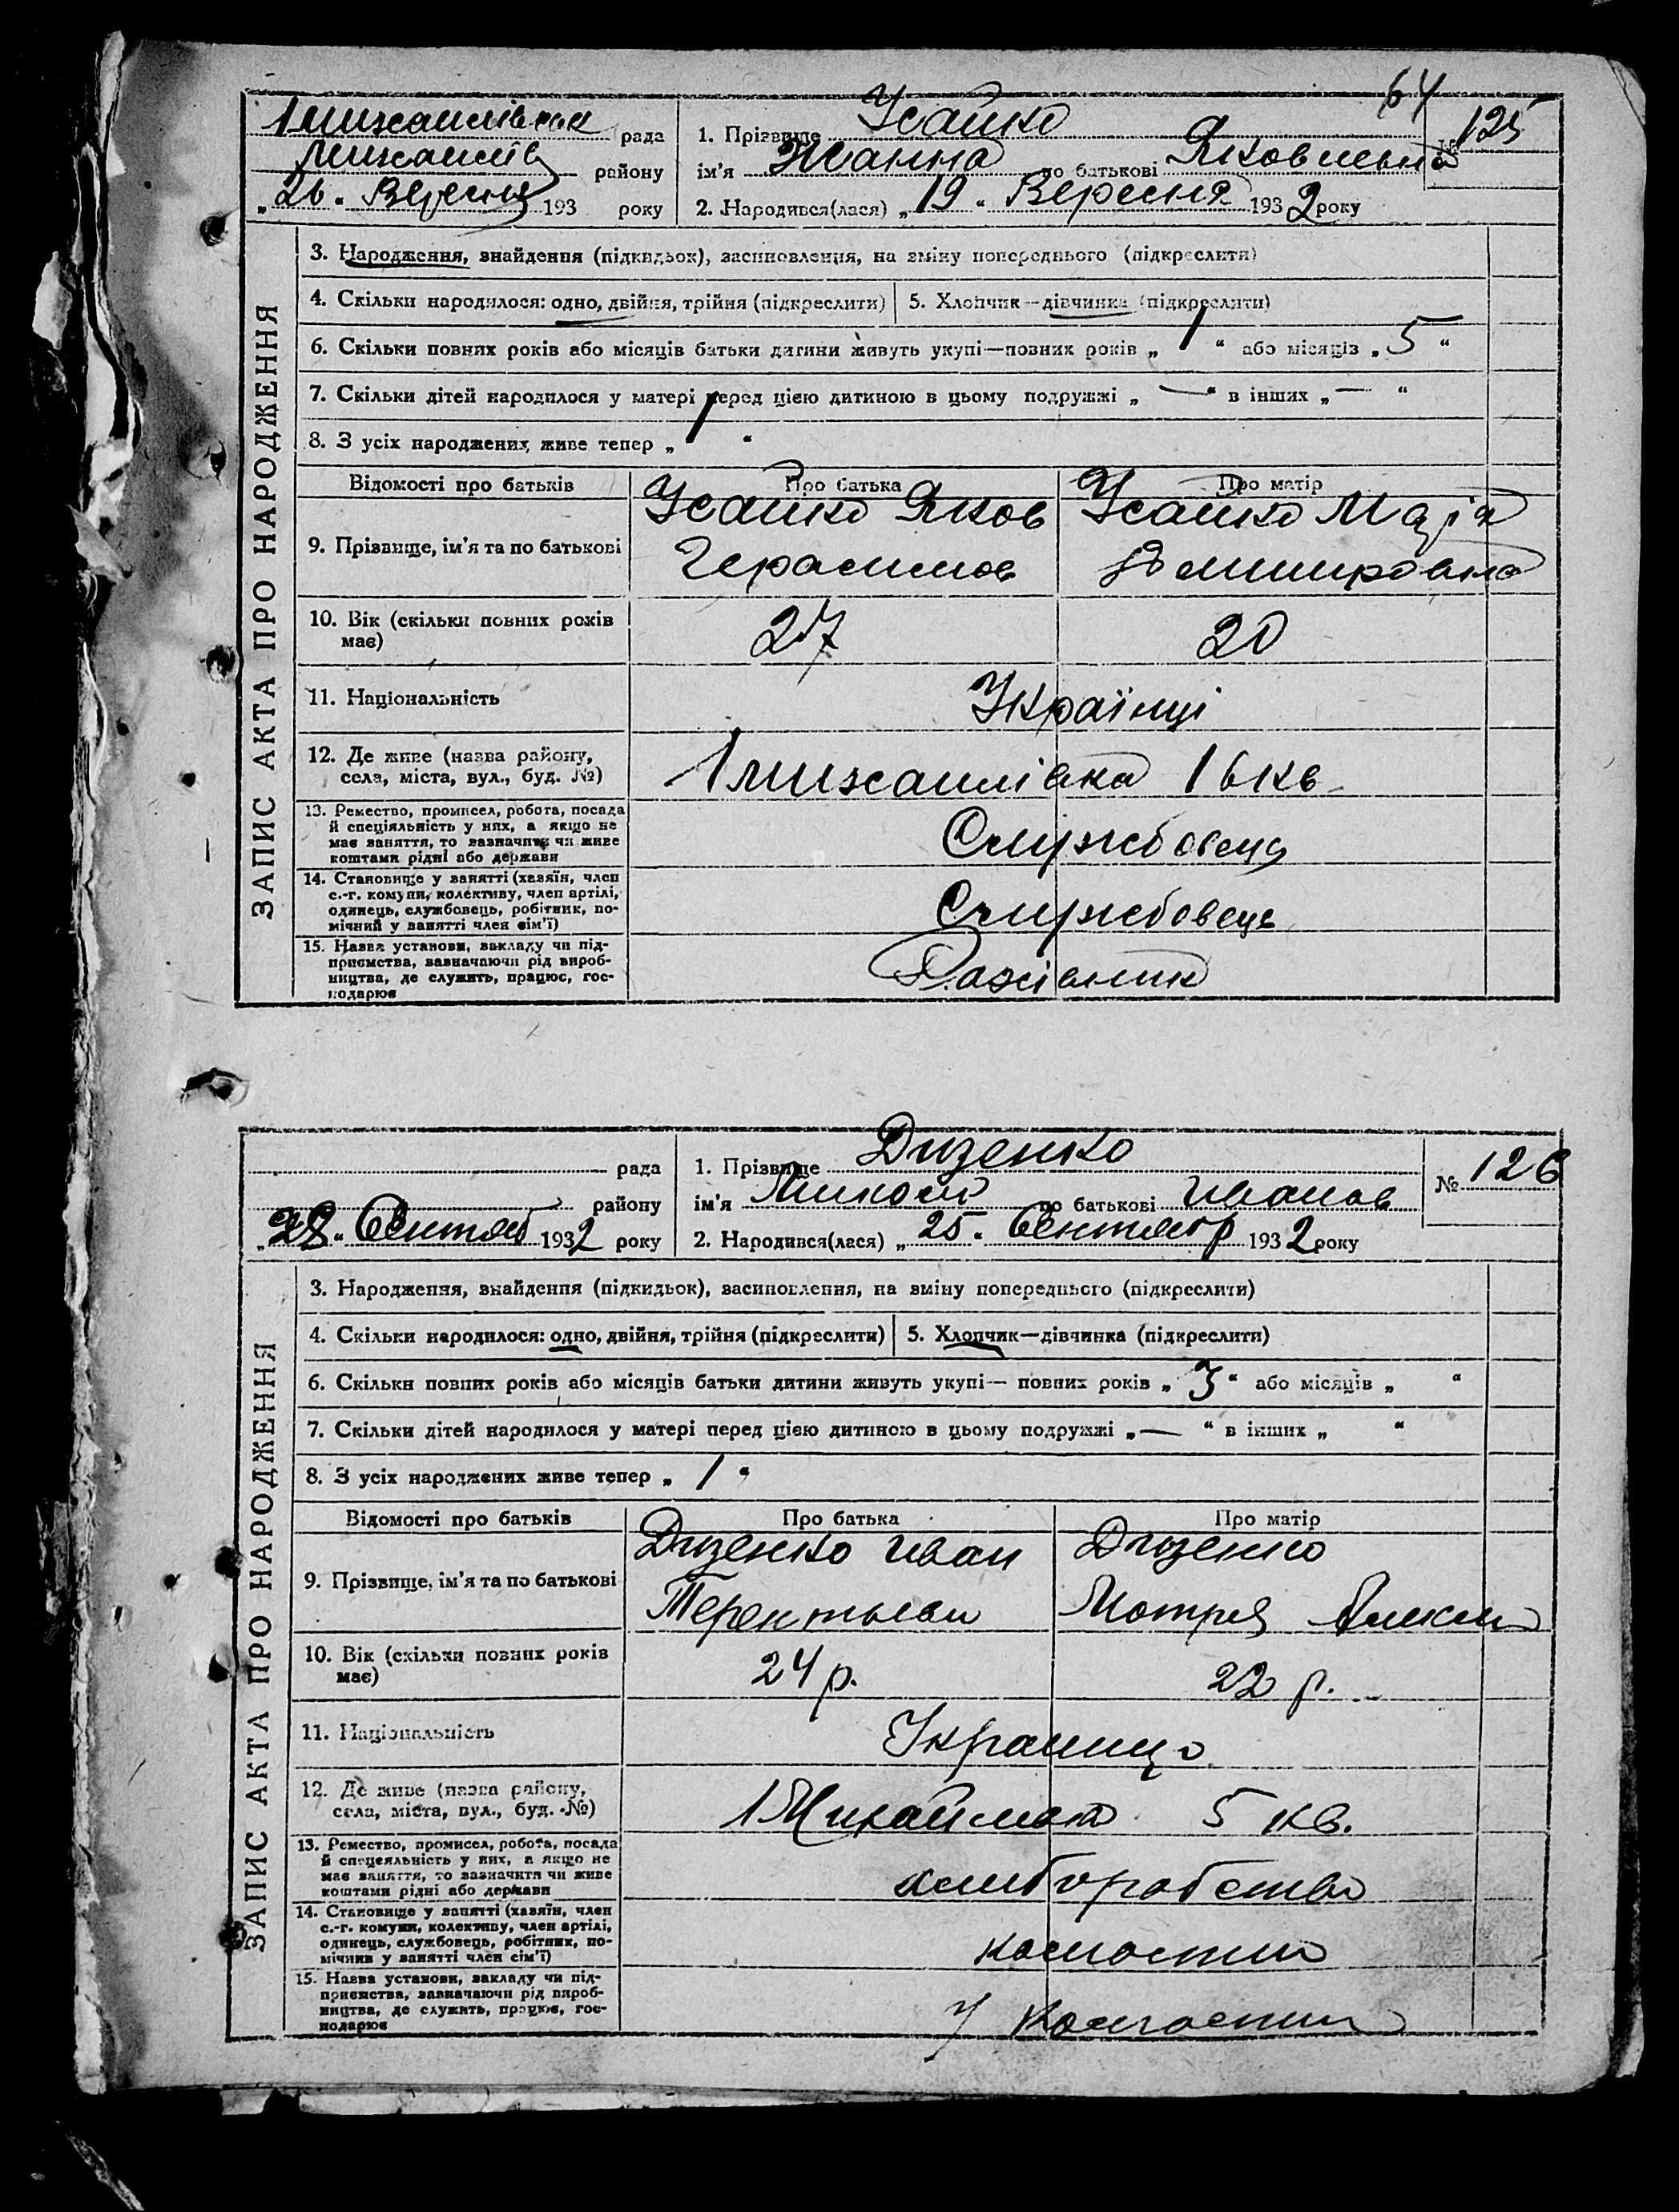 64
1 Михайлівська рада
Михайлів району
„26“ Вересня 193 року
1. Прізвище Усайко
ім'я Жанна по батькові Яковлевна
2. Народився(лася) „19“ Вересня 1932 року
№ 125
ЗАПИС АКТА ПРО НАРОДЖЕННЯ
3. Народження, знайдення (підкидьок), засиновлення, на зміну попереднього (підкреслити)
4. Скільки народилося: одно, двійня, трійня (підкреслити) 5. Хлопчик—дівчинка (підкреслити)
6. Скільки повних років або місяців батьки дитини живуть укупі—повних років „1“ або місяців „5“
7. Скільки дітей народилося у матері перед цією дитиною в цьому подружжі „—“ в інших „—“
8. З усіх народжених живе тепер „1“
Відомості про батьків Про батька Про матір
9. Прізвище, ім'я та по батькові
Усайко Яков
Герасимов
Усайко Марія
10. Вік (скільки повних років
має)
27 20
11. Національність Українці
12. Де живе (назва району,
села, міста, вул., буд. №)
1 Михайлівка 16 кв
13. Ремество, промисел, робота, посада
й спеціяльність у них, а якщо не
має заняття, то зазначити чи живе
коштами рідні або держави
Службовець
14. Становище у занятті (хазяїн, член
с.-г. комуни, колективу, член артілі,
одинець, службовець, робітник, по-
мічний у занятті член сім'ї)
Службовець
15. Назва установи, закладу чи під-
приємства, зазначаючи рід вироб-
ництва, де служить, працює, гос-
подарює
рада
району
„28“ Сентяб 1932 року
1. Прізвище Дизенко
ім'я Микола по батькові Иванов
2. Народився(лася) „25“ Сентябр 1932 року
№ 126
ЗАПИС АКТА ПРО НАРОДЖЕННЯ
3. Народження, знайдення (підкидьок), засиновлення, на зміну попереднього (підкреслити)
4. Скільки народилося: одно, двійня, трійня (підкреслити) 5. Хлопчик—дівчинка (підкреслити)
6. Скільки повних років або місяців батьки дитини живуть укупі— повних років „3“ або місяців „ “
7. Скільки дітей народилося у матері перед цією дитиною в цьому подружжі „—“ в інших „ “
8. З усіх народжених живе тепер „1“
Відомості про батьків Про батька Про матір
9. Прізвище, ім'я та по батькові
Дизенко Иван
Терентьеви
Дизенко
Мотря
10. Вік (скільки повних років
має)
24 р. 22 р.
11. Національність Украинцо
12. Де живе (назва району,
села, міста, вул., буд. №)
1 Михайловка 5 кв.
13. Ремество, промисел, робота, посада
й спецеяльність у них, а якщо не
має заняття, то зазначити чи живе
коштами рідні або держави
хлиборобство
14. Становище у занятті (хазяїн, член
с.-г. комуни, колективу, член артілі,
одинець, службовець, робітник, по-
мічник у занятті член сім'ї)
колгоспи
15. Назва установи, закладу чи під-
приємства, зазначаючи рід вироб-
ництва, де служить, працює, гос-
подарює
У колгоспи